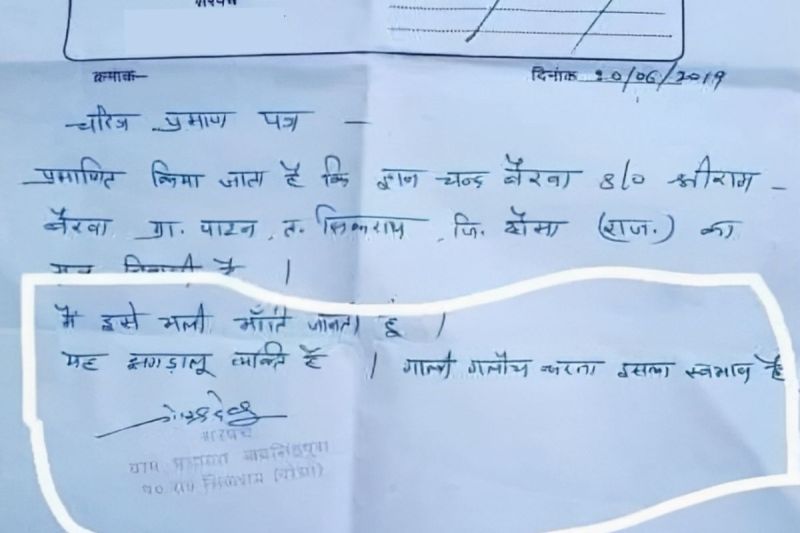 सरपंच
क्रमांक-
दिनांक 20/06/2019
चरित्र प्रमाण पत्र -
प्रमाणित किया जाता है कि ज्ञान चन्द बैरवा S/o श्रीराम -
बैरवा ग्रा. पाटन, त. सिकराय, जि. दौसा (राज.) का
मूल निवासी है ।
मैं इसे भली भाँति जानता हूं ।
यह झगड़ालू व्यक्ति है । गाली गलौच करना इसका स्वभाव है
सरपंच
ग्राम पंचायत
पं० स० सिकराय (दौसा)